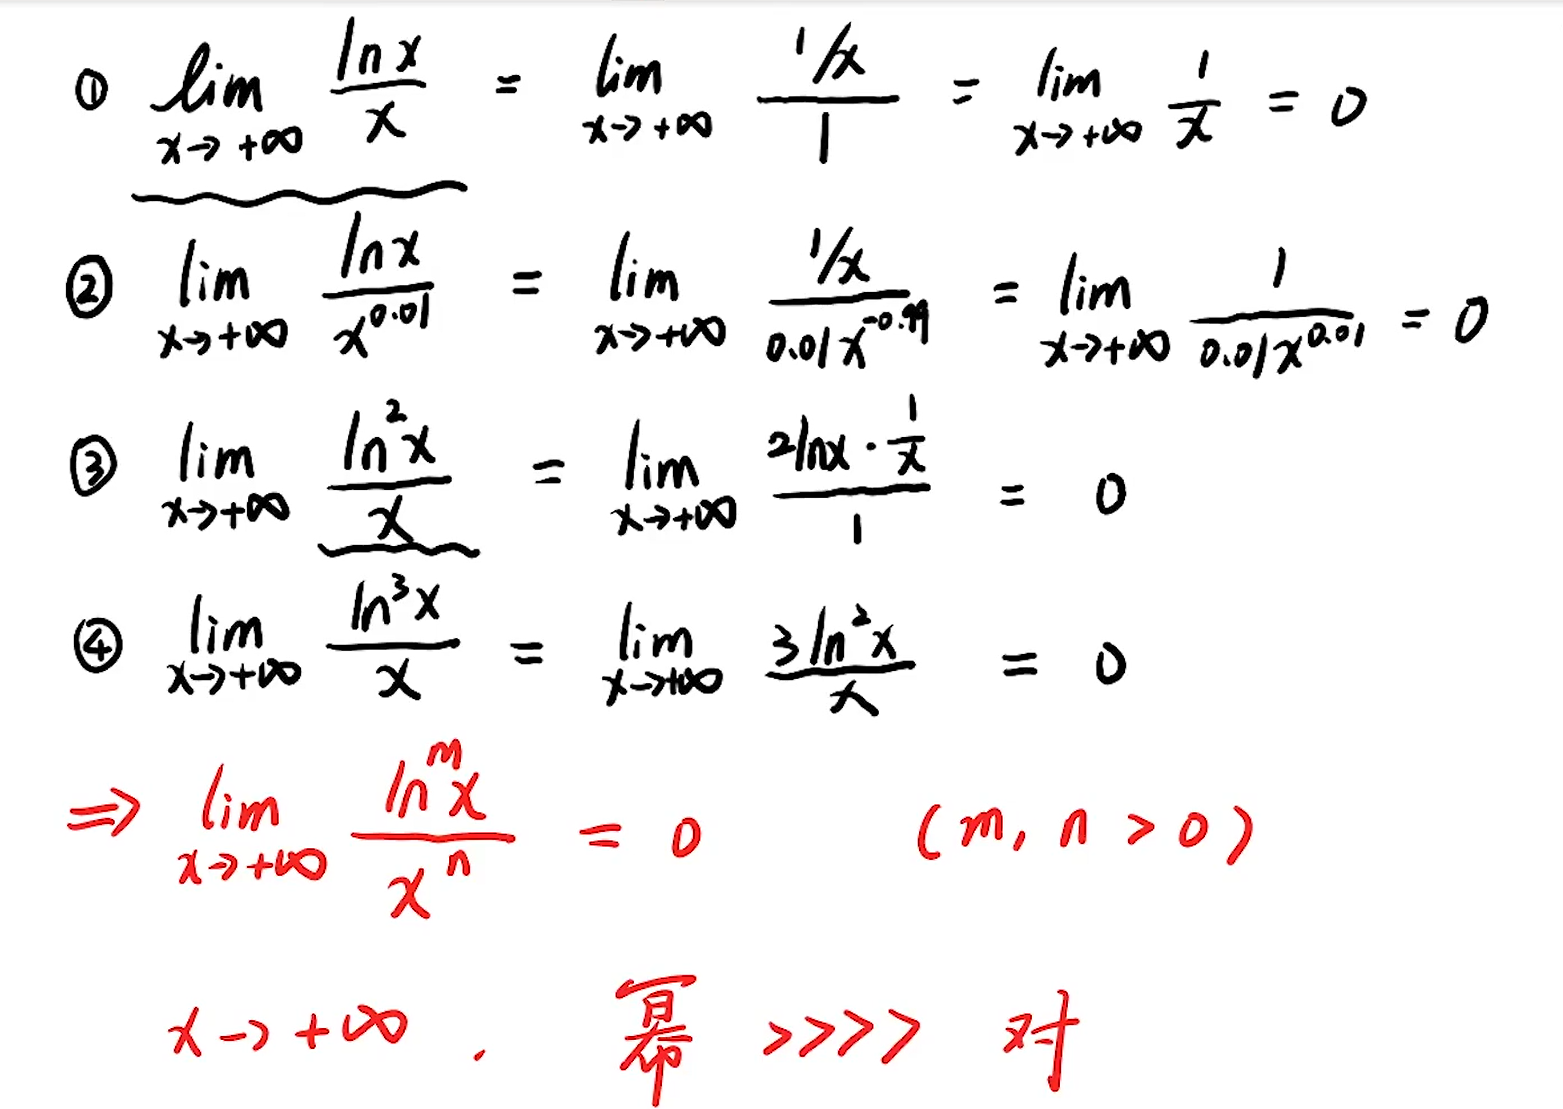 ① lim x→+∞ lnx/x = lim x→+∞ (1/x)/1 = lim x→+∞ 1/x = 0
② lim x→+∞ lnx/x^0.01 = lim x→+∞ (1/x)/(0.01x^-0.99) = lim x→+∞ 1/(0.01x^0.01) = 0
③ lim x→+∞ ln²x/x = lim x→+∞ (2lnx·1/x)/1 = 0
④ lim x→+∞ ln³x/x = lim x→+∞ 3ln²x/x = 0
⇒ lim x→+∞ ln^m x/x^n = 0 (m, n > 0)
x→+∞. 幂 >>>> 对